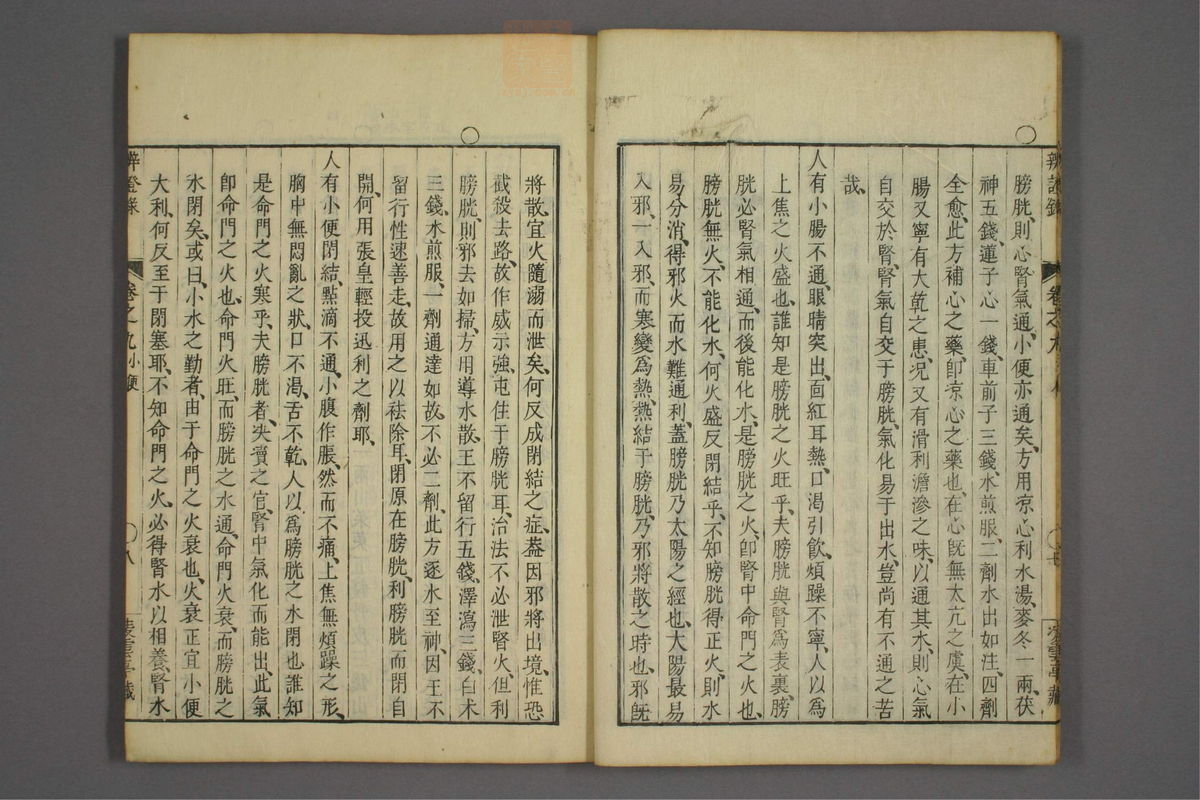 膀胱、則心腎氣通、小便亦通矣、方用凉心利水湯、麥冬一兩茯
神五錢、蓮子心一錢、車前子三錢、水煎服、二劑水出如注、四劑
全愈、此方補心之藥、卽凉心之藥也、在心旣無太亢之虞、在小
腸又寧有大乾之患、况又有滑利澹滲之味、以通其水、則心氣
自交於腎、腎氣自交于膀胱、氣化易于出水、豈尚有不通之苦
哉、
人有小腸不通、眼睛突出、面紅耳熱、口渴引飲、煩躁不寧、人以爲
上焦之火盛也、誰知是膀胱之火旺乎、夫膀胱與腎爲表裏、膀
胱必腎氣相通、而後能化水、是膀胱之火、卽腎中命門之火也、
膀胱無火、不能化水、何火盛反閉結乎、不知膀胱得正火、則水
易分消、得邪火而水難通利、蓋膀胱乃太陽之經也、大陽最易
入邪、一入邪、而寒變爲熱、熱結于膀胱、乃邪將散之時也、邪旣
辨證錄
卷之九
將散、宜火隨溺而泄矣、何反成閉結之症、葢因邪將出境、惟恐
截殺去路、故作威示強、屯住于膀胱耳、治法不必泄腎火、但利
膀胱、則邪去如掃、方用導水散、王不留行五錢、澤瀉三錢、白术
三錢、水煎服、一劑通達如故、不必二劑、此方逐水至神、因王不
留行性速善走、故用之以祛除耳、閉原在膀胱、利膀胱而閉自
開、何用張皇輕投迅利之劑耶、
人有小便閉結、點滴不通、小腹作脹、然而不痛、上焦無煩躁之形、
胸中無悶亂之狀、口不渴、舌不乾、人以爲膀胱之水閉也、誰知
是命門之火寒乎、夫膀胱者、决瀆之官、腎中氣化而能出、此氣
卽命門之火也、命門火旺、而膀胱之水通、命門火衰、而膀胱之
水閉矣、或曰、小水之勤者、由于命門之火衰也、火衰正宜小便
大利、何反至于閉塞耶、不知命門之火、必得腎水以相養、腎水
證錄
卷之九
小便
八